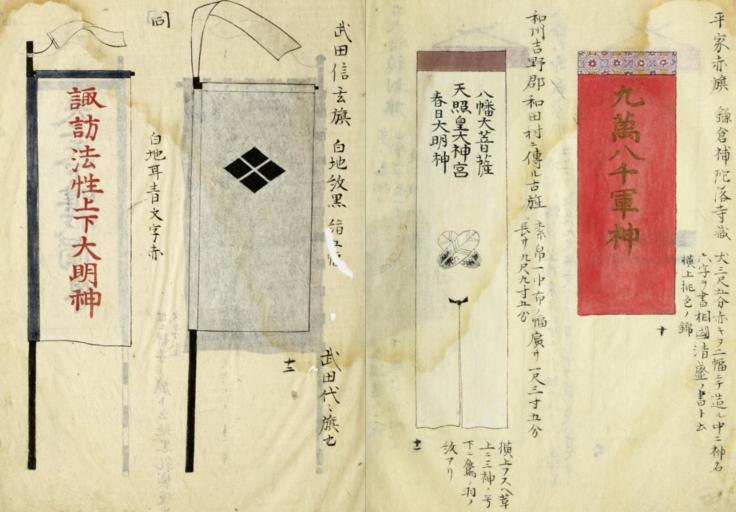 平家赤旗 鎌倉補陀落寺蔵
大三尺五分赤キヲ二幅ニテ造ル中ニ神名
六字ヲ書相國清盛ノ書ト云
横上桃色ノ錦
九萬八千軍神
十
和州吉野郡和田村ニ傳ル古旌 素帛一巾布ノ幅廣サ一尺三寸五分
長サ九尺九寸五分
八幡大菩薩
天照皇大神宮
春日大明神
横上フスヘ革
上ニ三神ノ号
下ニ鷹ノ羽ノ
紋アリ
十一
武田信玄旗 白地紋黒
武田代々旗也
十二
白地耳青文字赤
諏訪法性上下大明神